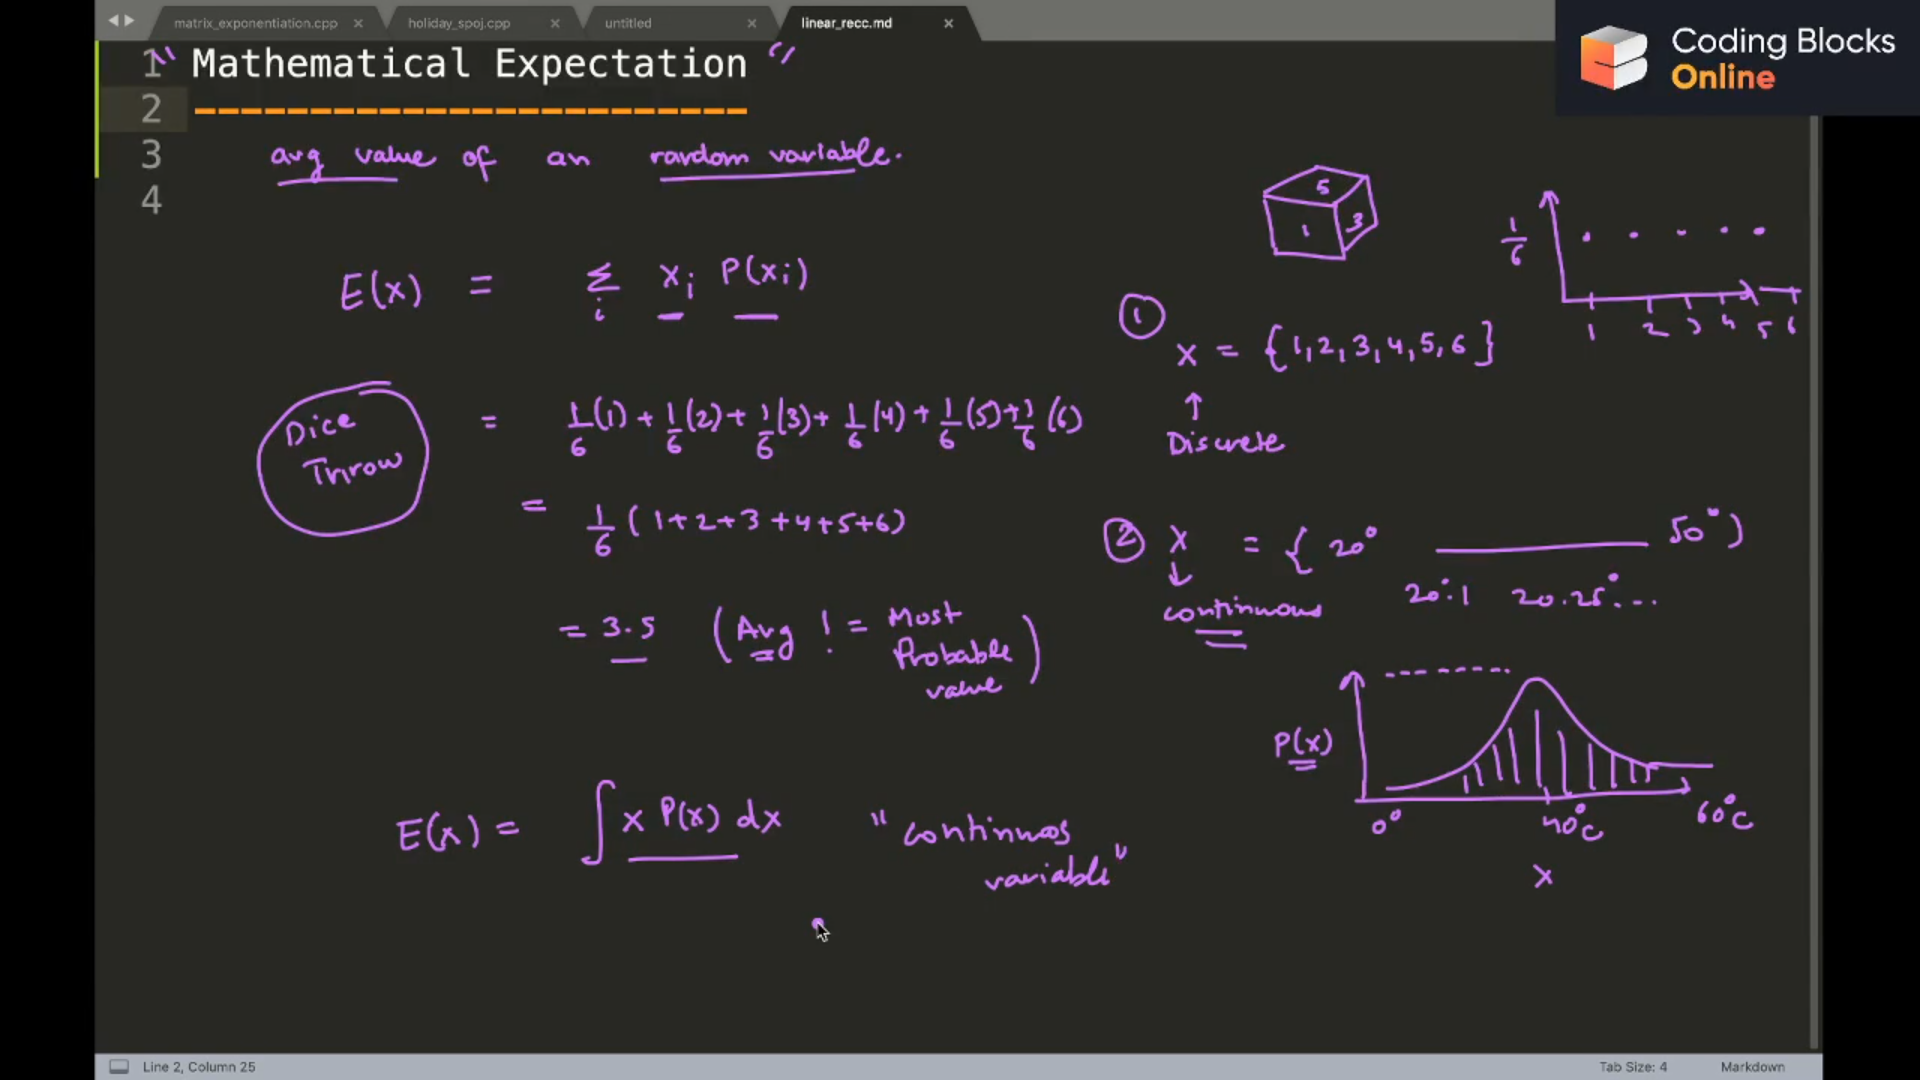 matrix_exponentiation.cpp × holiday_spoj.cpp × untitled × linear_recc.md ×
Coding Blocks
Online
1 " Mathematical Expectation "
2 -----------------------
3 avg value of an random variable.
4
E(x) = Σ xi P(xi)
i
Dice
Throw
= 1/6(1) + 1/6(2) + 1/6(3) + 1/6(4) + 1/6(5) + 1/6(6)
= 1/6 (1+2+3+4+5+6)
= 3.5 (Avg != Most
Probable
value)
E(x) = ∫ x P(x) dx "continuos
variable"
5
1 3
1/6
1 2 3 4 5 6
① x = {1,2,3,4,5,6}
↑
Discrete
② X = { 20° 50° )
↓
continuous
20.1 20.25° ...
P(x)
0° 40°C 60°C
x
Line 2, Column 25
Tab Size: 4 Markdown